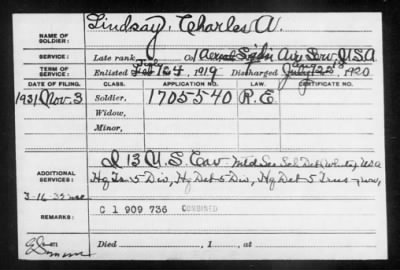 NAME OF SOLDIER: Lindsay, Charles A.
SERVICE: Late rank, Co. 1 Air Serv. U.S.A
TERM OF SERVICE: Enlisted Feb 24, 1919 Discharged 1920
DATE OF FILING. CLASS. APPLICATION NO. CERTIFICATE NO.
1931 Nov. 3 Soldier, 1705540 R.E.
Widow,
Minor,
ADDITIONAL SERVICES: 13 U.S. Cav
Hq Tr 5 Div, Hq Det 5 Div, Hq Det 5
REMARKS: C 1 909 736 COMBINED
Died , 1 , at